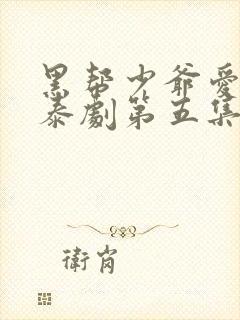 黑帮少爷爱
泰劇第五集
衛肖